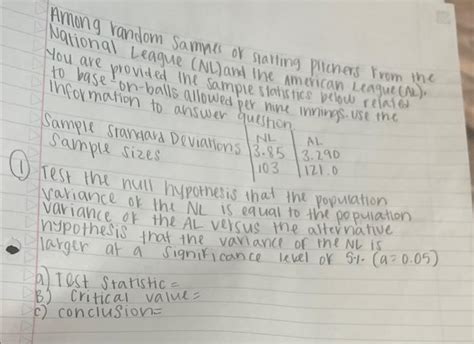 Among random samples of starting pitchers from the
National League (NL) and the American League (AL).
You are provided the sample statistics below related
to base-on-balls allowed per nine innings. use the
information to answer question
NL AL
Sample Standard Deviations 3.85 3.290
Sample sizes 103 121.0
① Test the null hypothesis that the population
variance of the NL is equal to the population
variance of the AL versus the alternative
hypothesis that the variance of the NL is
larger at a significance level of 5% (a=0.05)
a) Test Statistic =
B) critical value=
c) conclusion=